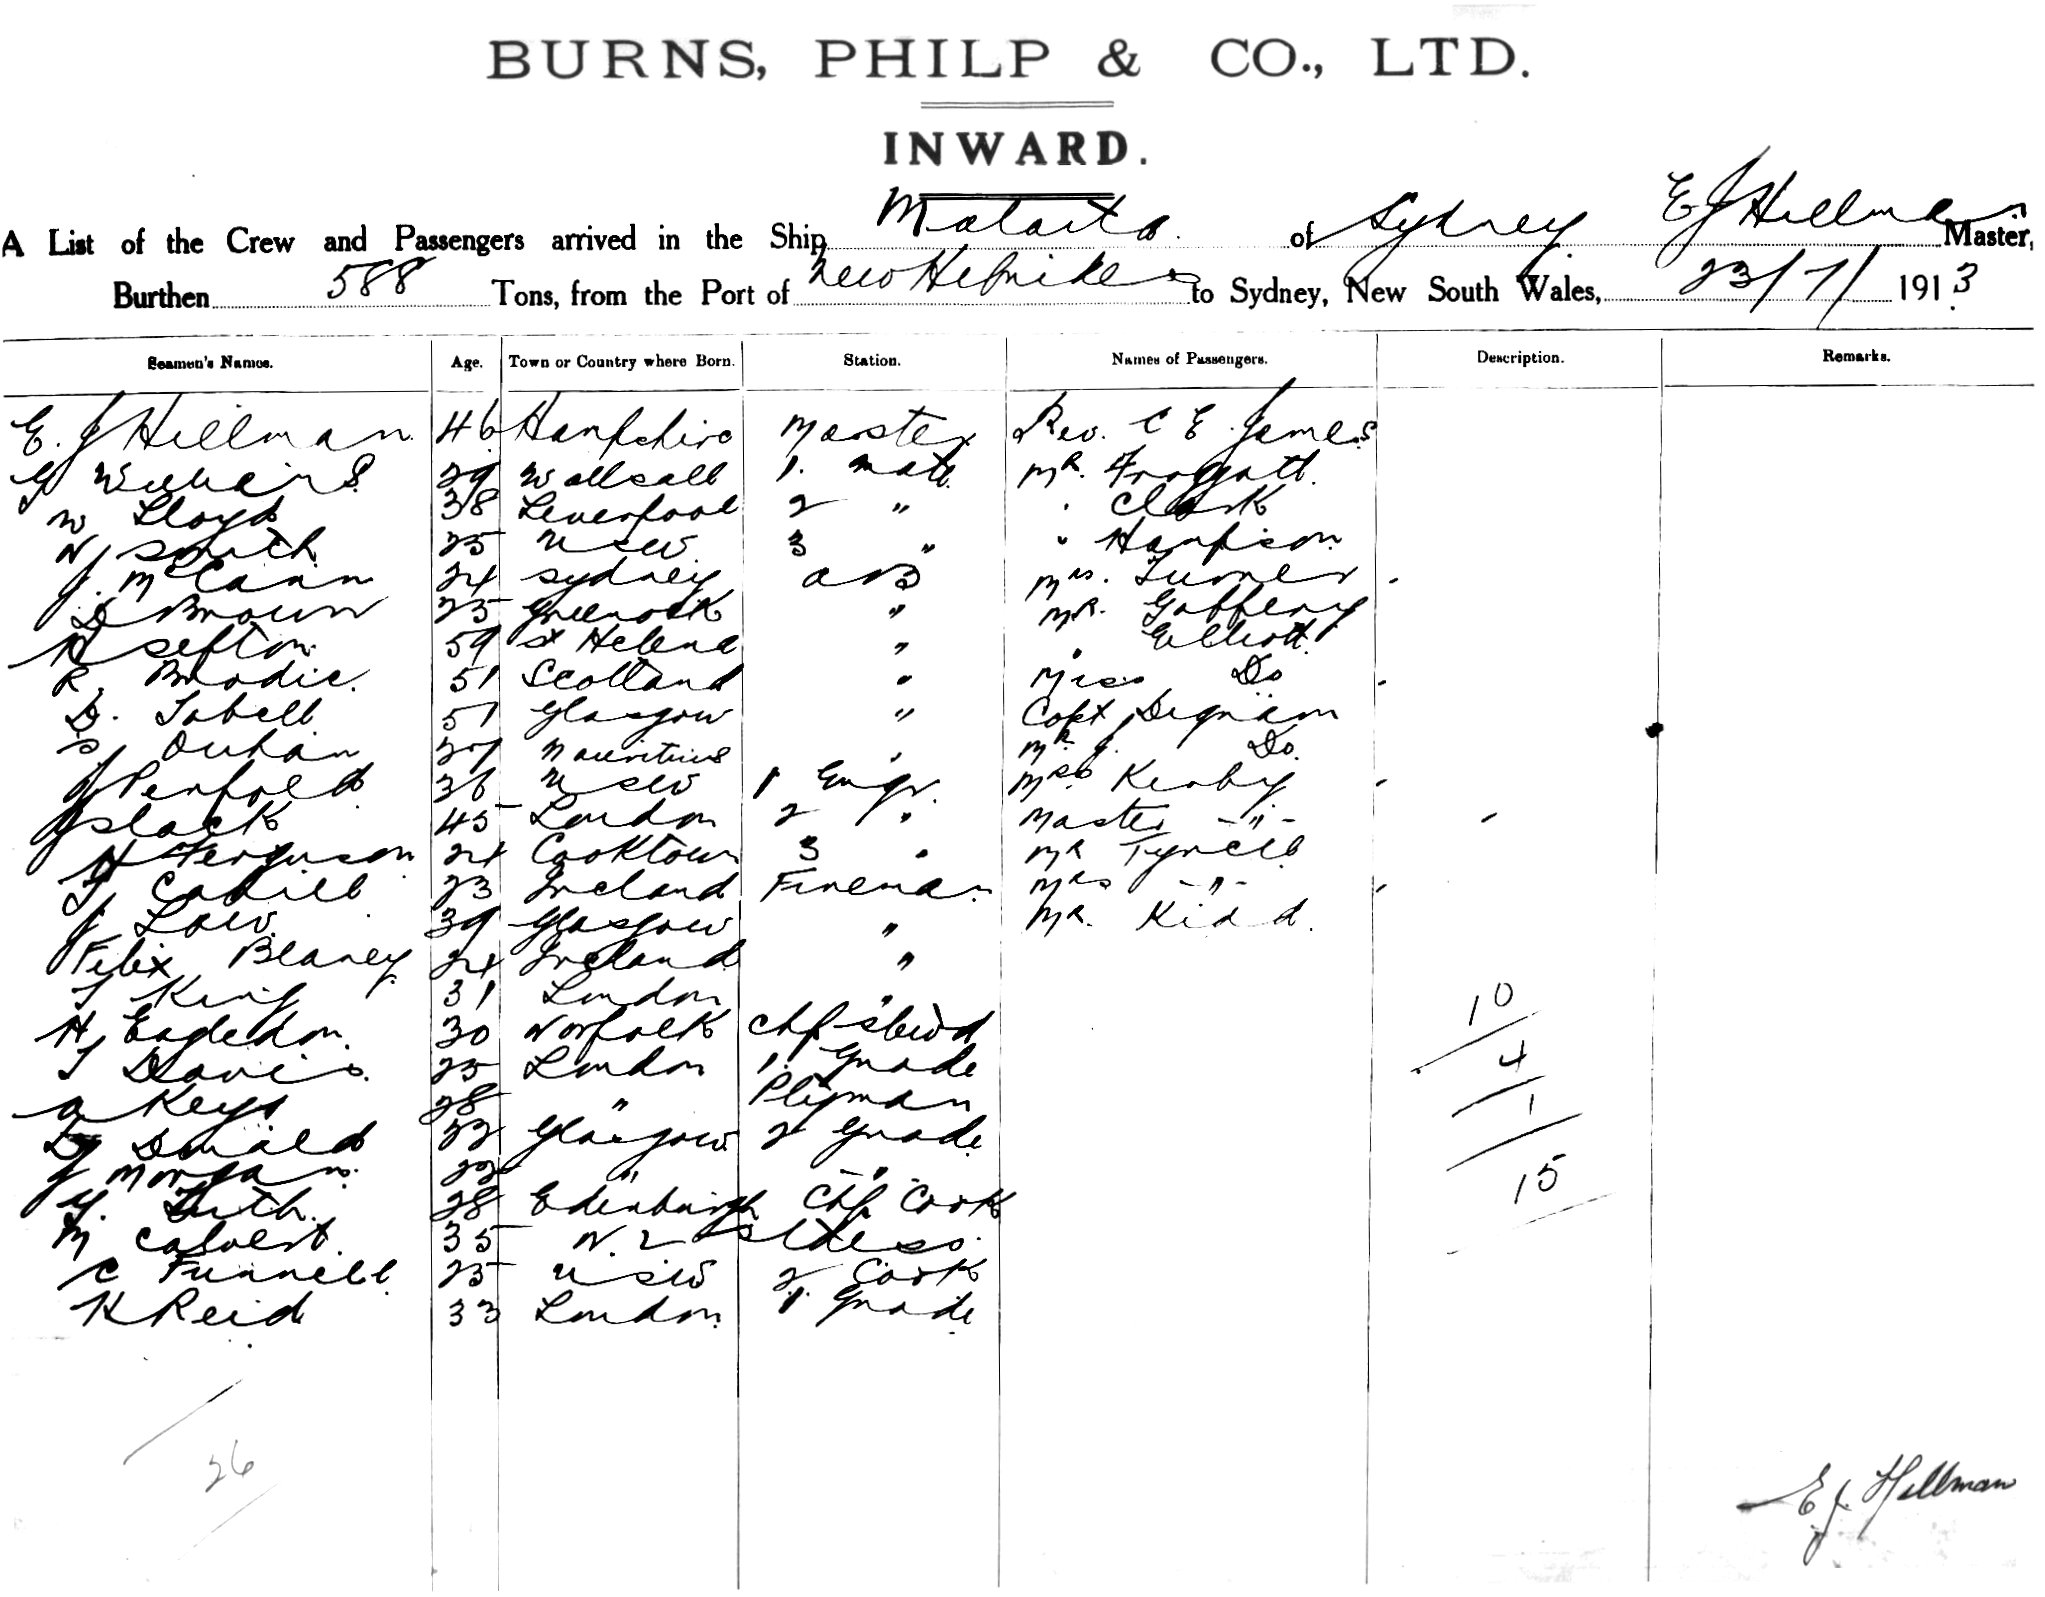 BURNS, PHILP & CO., LTD.
INWARD.
A List of the Crew and Passengers arrived in the Ship Malaita of Sydney E J Hillman Master,
Burthen 588 Tons, from the Port of New Hebrides to Sydney, New South Wales, 23/7/1913
Seamen's Names. Age. Town or Country where Born. Station. Names of Passengers. Description. Remarks.
E. J Hillman 46 Hampshire Master Rev. C E James
Williams 29 Wallsall 1. Mate Mr. Froggatt
W Lloyd 38 Liverpool 2 " " Clark
W J Smith 25 NSW 3 " " Harrison
J. McCann 24 Sydney AB Mrs. Turner
D Brown 25 Greenock " Mr. Gaffery
H Sefton 59 St Helena " " Elliott
R. Brodie 51 Scotland " Miss Do
D. Tobell 51 Glasgow " Capt Dignam
Mauritius " Mr J. Do
J Penfold 36 NSW 1 Engr. Mrs Kerby
J Slack 45 London 2 " Master -"-
H Ferguson 24 Cooktown 3 " Mr Tyrell
T Cahill 23 Ireland Fireman Mrs -"-
J Low 39 Glasgow " Mr. Kidd
Felix Blaney 24 Ireland "
T King 31 London "
H Eagledon 30 Norfolk Chf Stewd
T Davis 25 London 1. Grade
A Keys 28 " Ptyman
Donald 23 Glasgow 2 Grade
J Morgan 22 " - "
Edinburgh Chf Cook
M Calvert 35 N. Z Stdess.
C Funnell 25 NSW 2 Cook
K Reid 33 London 1. Grade
10
4
1
15
26
E J. Hillman